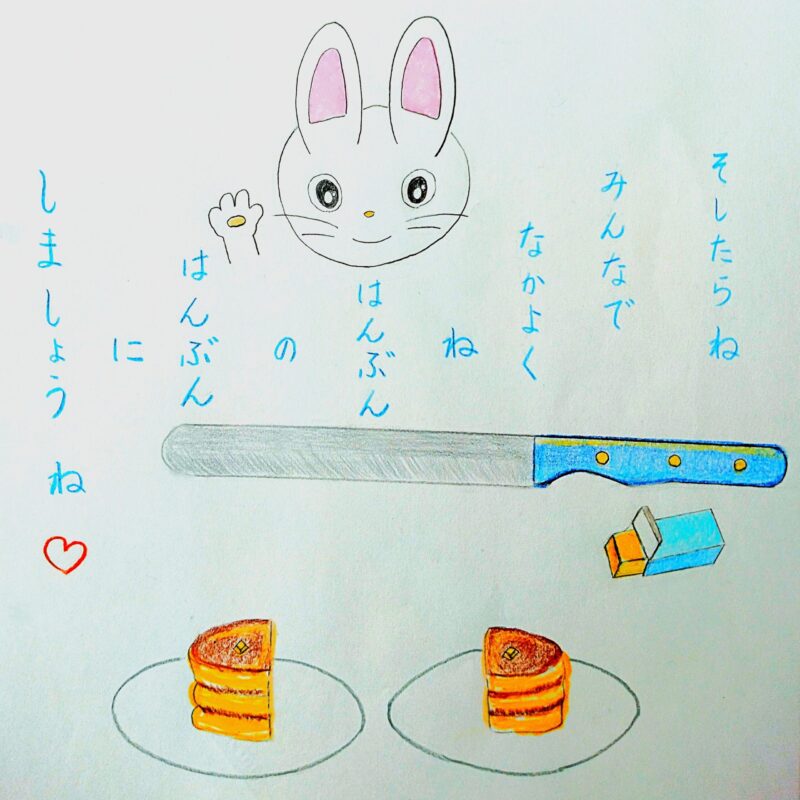 そしたらね
みんなで
なかよく
ね
はんぶん
の
はんぶん
に
しましょうね